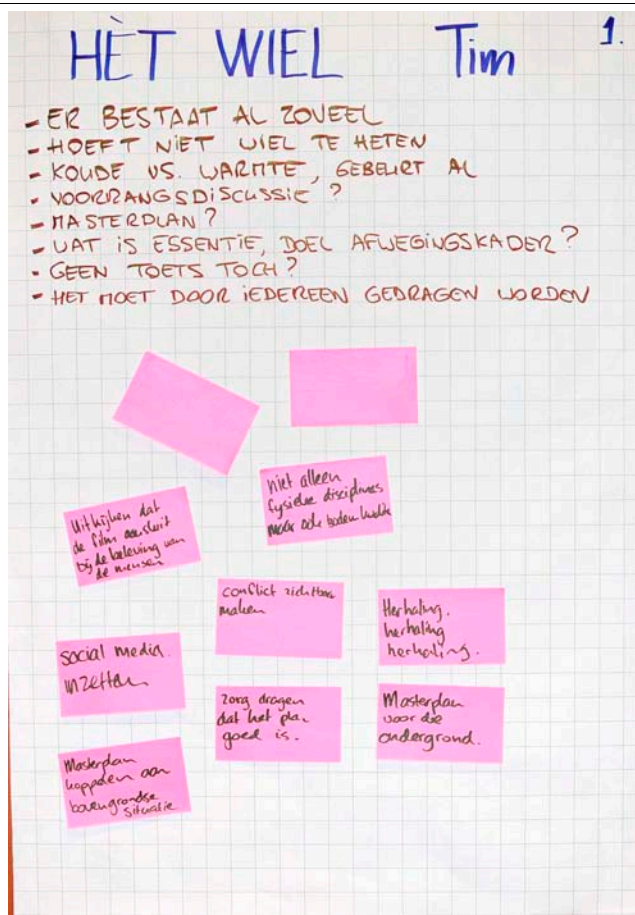 HÈT WIEL Tim 1.
- ER BESTAAT AL ZOVEEL
- HOEFT NIET WIEL TE HETEN
- KOUDE VS. WARMTE, GEBEURT AL
- VOORRANGSDISCUSSIE ?
- MASTERPLAN?
- WAT IS ESSENTIE, DOEL AFWEGINGSKADER?
- GEEN TOETS TOCH?
- HET MOET DOOR IEDEREEN GEDRAGEN WORDEN
niet alleen
fysieke disciplines
maar ook bodem
Uitkijken dat
de film aansluit
bij de beleving van
de mensen
conflict zichtbaar
maken
Herhaling.
herhaling
herhaling.
social media.
inzetten
zorg dragen
dat het plan
goed is.
Masterplan
voor die
ondergrond.
Masterplan
koppelen aan
bovengrondse
situatie